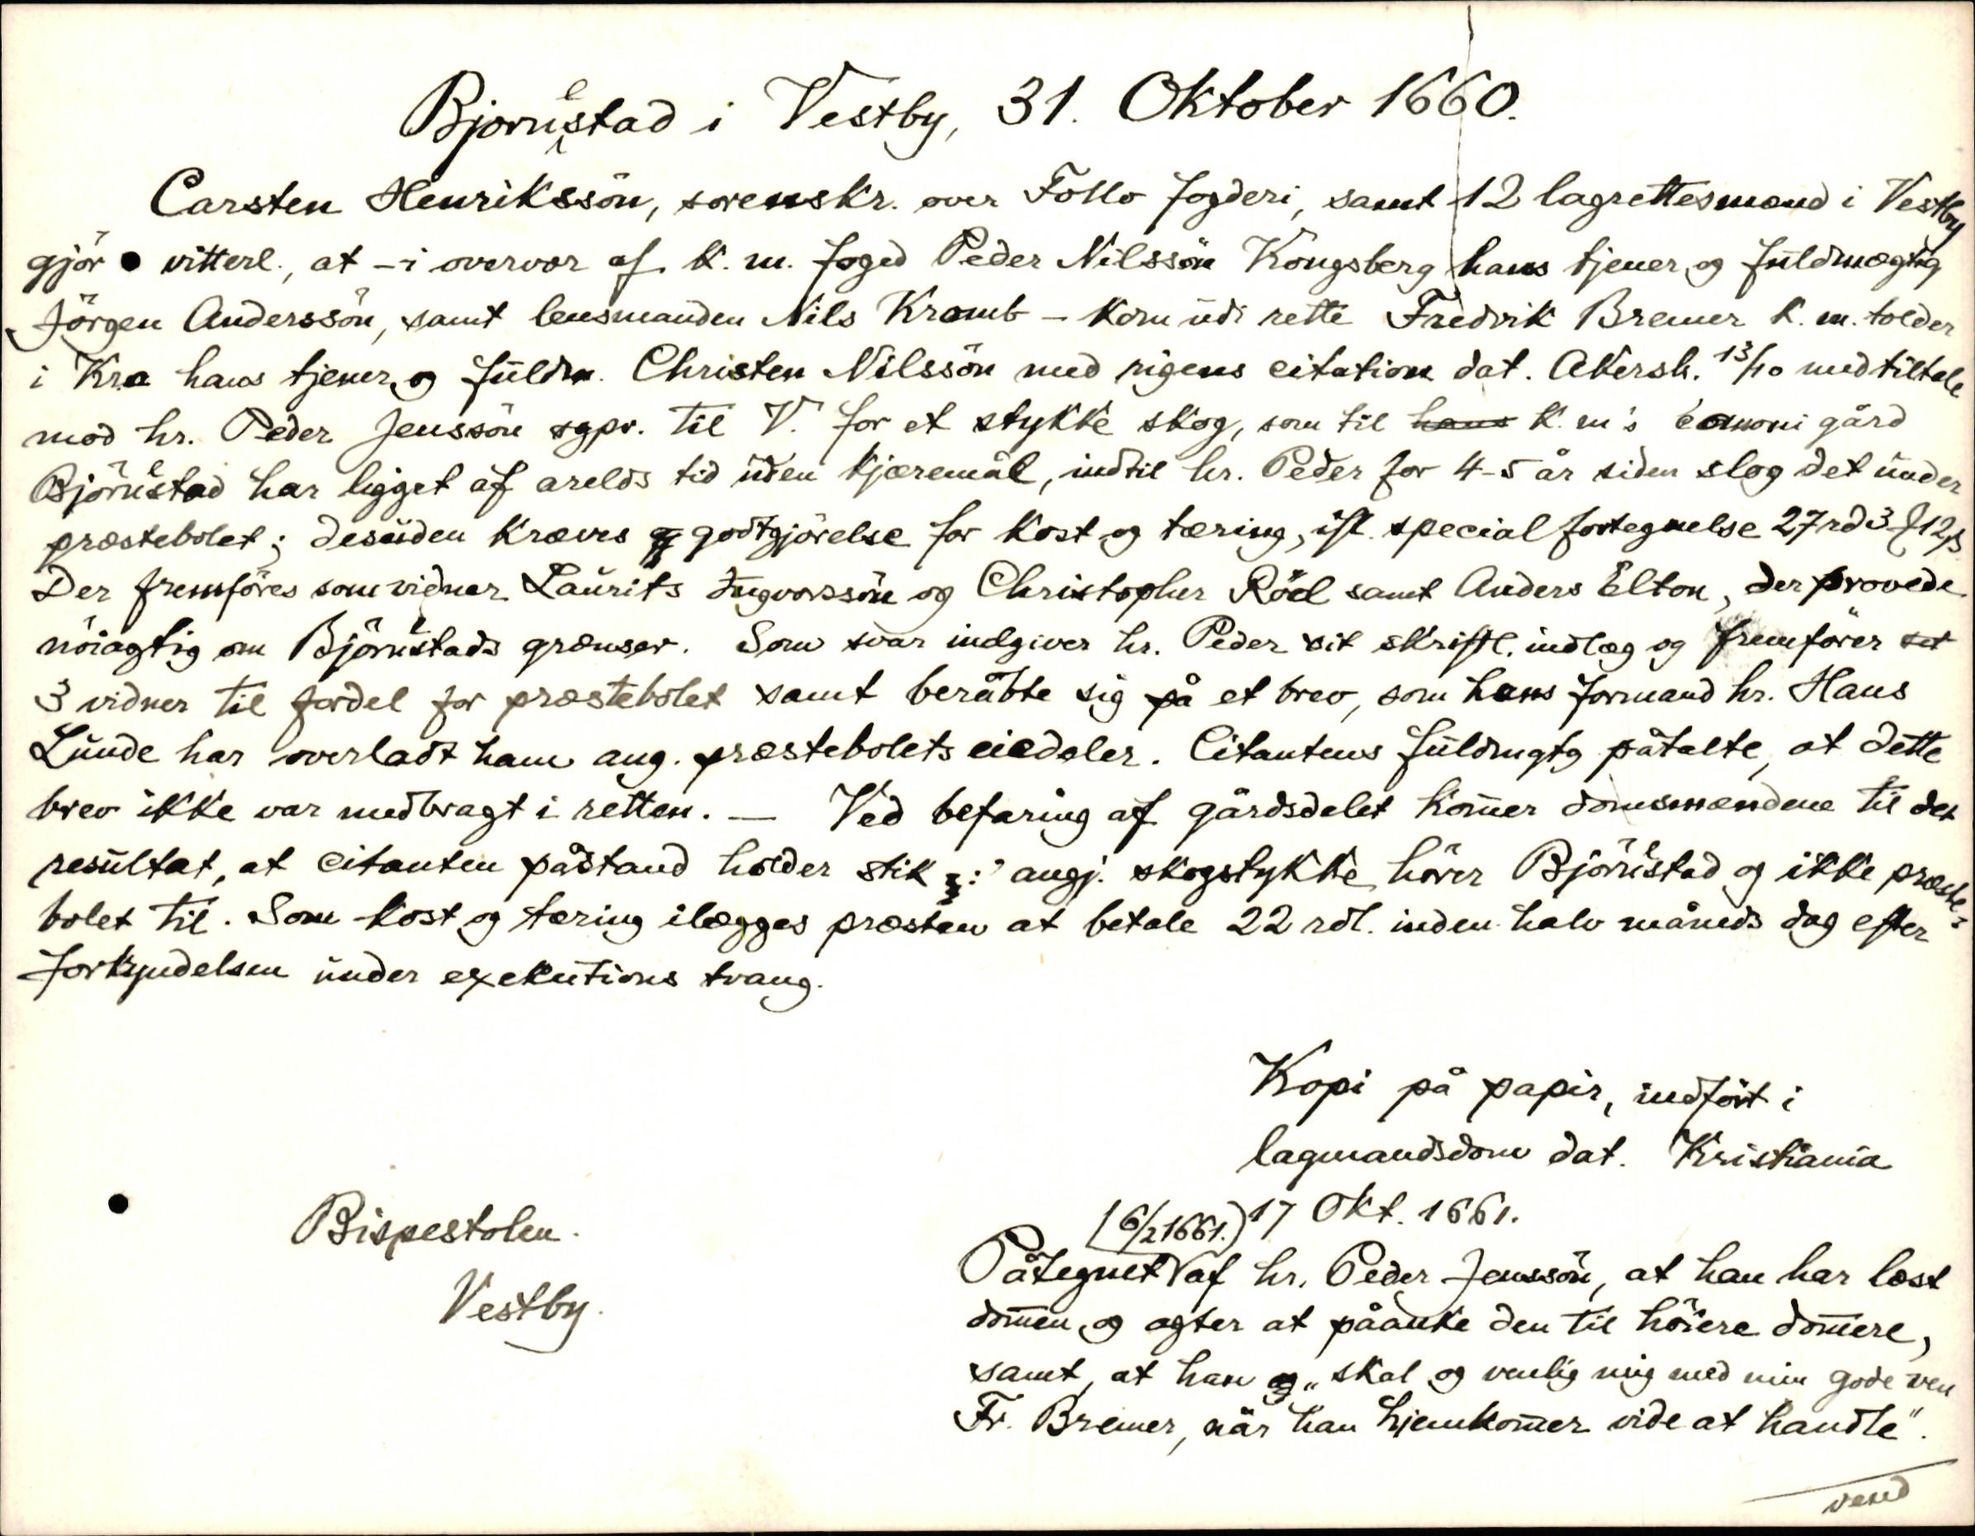 Bjornuestad i Vestby, 31. Oktober 1660.
Carsten Henrikssön, sorenskr. over Follo fogderi, samt 12 lagrettesmænd i Vestby
gjör vitterl., at - i overvær af k. m. foged Peder Nilssön Kongsberg hans tjener og fuldmægtig
Jörgen Anderssön, samt lensmanden Nils Kramb - kom udi rette Fredrik Bremer k. m. tolder
i Kra hans tjener og fuldm. Christen Nilssön med rigens citation dat. Akersh. 13/10 med tiltale
mod hr. Peder Jenssön sgpr. til V. for et stykke skog, som til hans k. m's gård
Björnuestad har ligget af arelds tid uden kjæremål, indtil hr. Peder for 4-5 år siden slog det under
præstebolet; desuden kræves godtgjörelse for kost og tæring, ifl. special fortegnelse 27 rd 3 ƒ 12 β
Der fremföres som vidner Laurits Ingvorssön og Christopher Röel samt Anders Elton, der provede
nöiagtig om Björnuestads grænser. Som svar indgiver hr. Peder sit skriftl. indlæg og fremförer
3 vidner til fordel for præstebolet samt beråbte sig på et brev, som hans formand hr. Hans
Lunde har overladt ham ang. præstebolets eiedeler. Citantens fuldmgtg påtalte, at dette
brev ikke var medbragt i retten. — Ved befaring af gårdsdelet kom̄er domsmændene til det
resultat, at citanten påstand holder stik : angj. skogstykke hörer Björnuestad og ikke præste-
bolet til. Som kost og tæring ilægges præsten at betale 22 rdl. inden halv måneds dag efter
forkyndelsen under exekutions tvang.
Kopi på papir, indfört i
lagmandsdom dat. Kristiania
17 Okt. 1661.
Bispestolen.
Vestby.
(6/2 1661.)
Påtegnet af hr. Peder Jenssön, at han har læst
dom̄en og agter at påanke den til höiere dom̄ere,
samt, at han „skal og venlig mig med min gode ven
Fr. Bremer, når han hjemkom̄er vide at handle".
vend